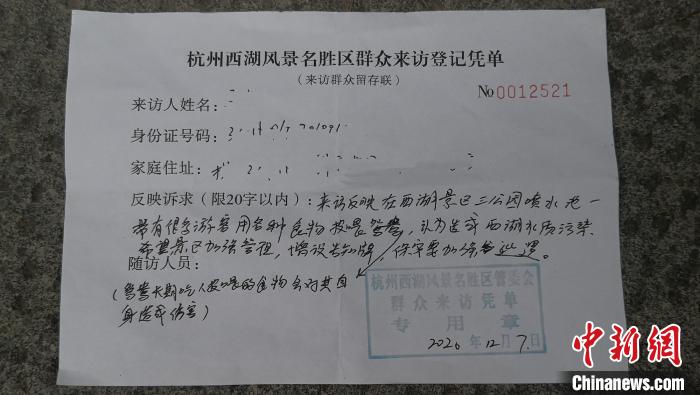 杭州西湖风景名胜区群众来访登记凭单
（来访群众留存联）
No 0012521
来访人姓名：
身份证号码：
家庭住址：
反映诉求（限20字以内）：来访反映在西湖景区三公园喷水池一
带有很多游客用各种食物投喂鸳鸯，认为造成西湖水质污染
希望景区加强管理，增设告知牌，保安要加强巡逻。
随访人员：
（鸳鸯长期吃人投喂的食物会对其自
身造成伤害）
杭州西湖风景名胜区管委会
群众来访凭单
专用章
2020年12月7日
中新网
Chinanews.com